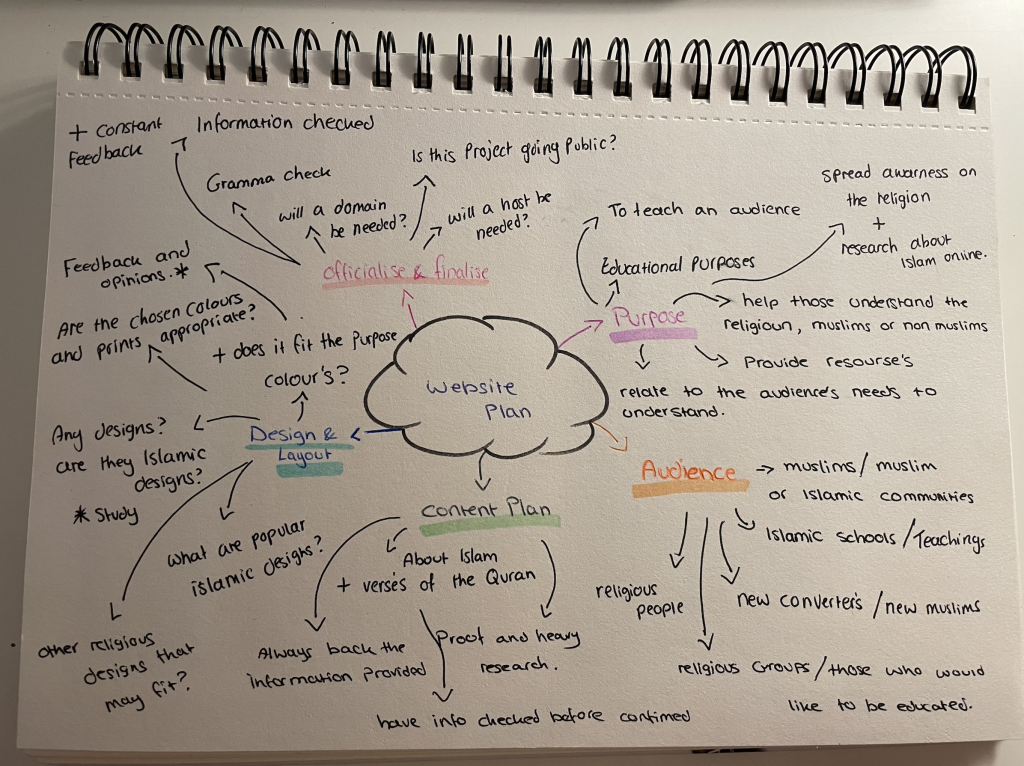 + Constant
Feedback
Information checked
Gramma check
Is this Project going Public?
will a domain
be needed?
will a host be
needed?
officialise & finalise
Feedback and
opinions.*
Are the chosen colours
and prints appropriate?
+ does it fit the Purpose
colour's?
Any designs?
are they Islamic
designs?
* Study
Design &
Layout
what are popular
islamic designs?
other religious
designs that
may fit?
Website
Plan
To teach an audience
Spread awarness on
the religion
+
research about
Islam online.
Educational Purposes
Purpose
help those understand the
religioun, muslims or non muslims
Provide resourse's
relate to the audience's needs to
understand.
Audience
muslims/ muslim
or Islamic communities
Islamic schools / Teachings
religious
people
new converter's / new muslims
religious Groups / those who would
like to be educated.
Content Plan
About Islam
+ verses of the Quran
Always back the
information provided
Proof and heavy
research.
have info checked before confimed